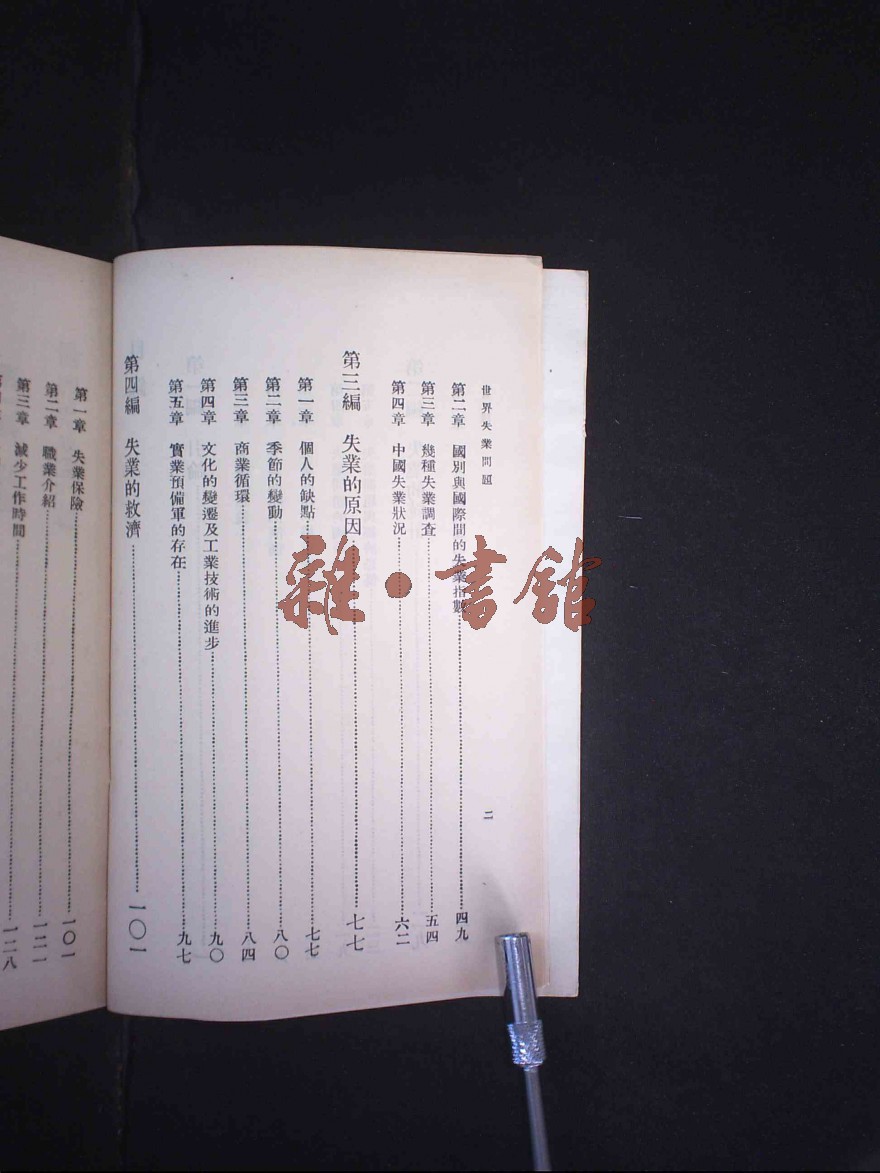 世界失業問題
二
第二章 國別與國際間的失業指數 四九
第三章 幾種失業調查 五四
第四章 中國失業狀況 六二
第三編 失業的原因 七七
第一章 個人的缺點 七七
第二章 季節的變動 八〇
第三章 商業循環 八四
第四章 文化的變遷及工業技術的進步 九〇
第五章 實業預備軍的存在 九七
第四編 失業的救濟 一〇一
第一章 失業保險 一〇一
第二章 職業介紹 一二一
第三章 減少工作時間 一二八
雜·書館